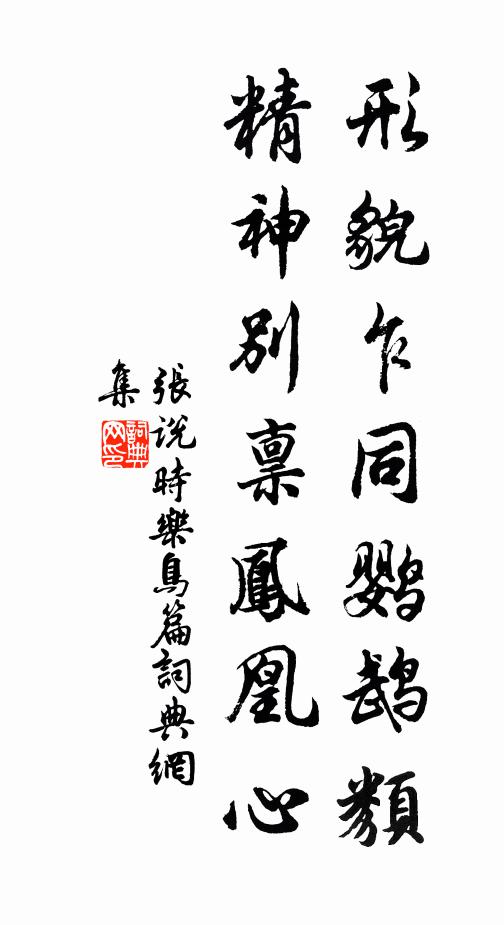 形貌乍同鹦鹉類
精神別禀鳳凰心
張说時樂鳥篇詞典網
集
詞典
网印